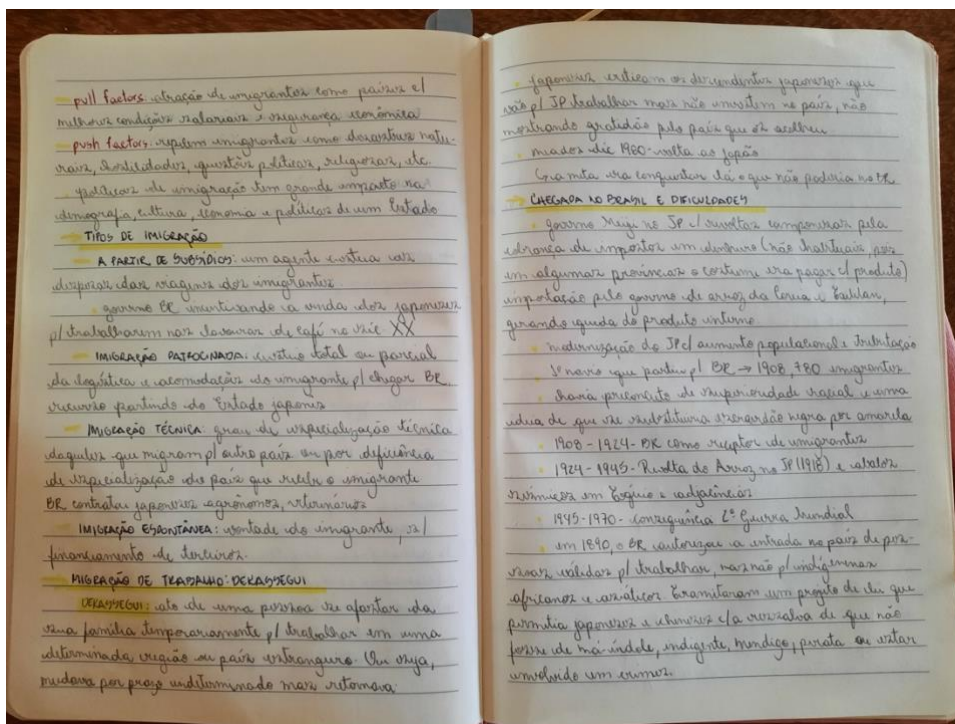 pull factors: atração de imigrantes como países c/
melhores condições salariais e segurança econômica
push factors: repelem imigrantes como desastres natu-
rais, hostilidades, questões políticas, religiosas, etc.
políticas de imigração tem grande impacto na
demografia, cultura, economia e políticas de um Estado
TIPOS DE IMIGRAÇÃO
A PARTIR DE SUBSÍDIOS: um agente custeia as
despesas das viagens dos imigrantes.
governo BR incentivando a vinda dos japoneses
p/ trabalharem nas lavouras de café no séc. XX
IMIGRAÇÃO PATROCINADA: custeio total ou parcial
da logística e acomodações do imigrante p/ chegar BR,
recurso partindo do Estado japonês
IMIGRAÇÃO TÉCNICA: grau de especialização técnica
daqueles que migram p/ outro país ou por deficiência
de especialização do país que recebe o imigrante
BR contratou japoneses agrônomos, veterinários
IMIGRAÇÃO ESPONTÂNEA: vontade do imigrante, s/
financiamento de terceiros.
MIGRAÇÃO DE TRABALHO: DEKASSEGUI
DEKASSEGUI: ato de uma pessoa se afastar da
sua família temporariamente p/ trabalhar em uma
determinada região ou país estrangeiro. Ou seja,
mudava por prazo indeterminado mas retornava
japoneses criticam os descendentes japoneses que
vão p/ JP trabalhar mas não investem no país, não
mostrando gratidão pelo país que os acolheu
meados de 1980 - volta ao Japão
a meta era conquistar lá o que não poderia no BR
CHEGADA AO BRASIL E DIFICULDADES
governo Meiji no JP c/ revoltas camponesas pela
cobrança de impostos em dinheiro (não habituais, pois
em algumas províncias o costume era pagar c/ produto)
importação pelo governo de arroz da Coreia e
gerando queda do produto interno
modernização do JP c/ aumento populacional e tributação
navio que partiu p/ BR → 1908, 780 imigrantes
havia preconceito de superioridade racial e uma
ideia de que se substituiria escravidão negra por amarela
1908 - 1924 - BR como receptor de imigrantes
1924 - 1945 - Revolta do Arroz no JP (1918) e abalos
sísmicos em e adjacências
1945-1970 - consequência 2ª Guerra Mundial
em 1890, o BR autorizou a entrada no país de pes-
soas válidas p/ trabalhar, mas não p/ indígenas
africanos e asiáticos. Tramitaram um projeto de lei que
permitia japoneses e chineses c/ a ressalva de que não
fosse de má índole, indigente, mendigo, pirata ou estar
envolvido em crimes.